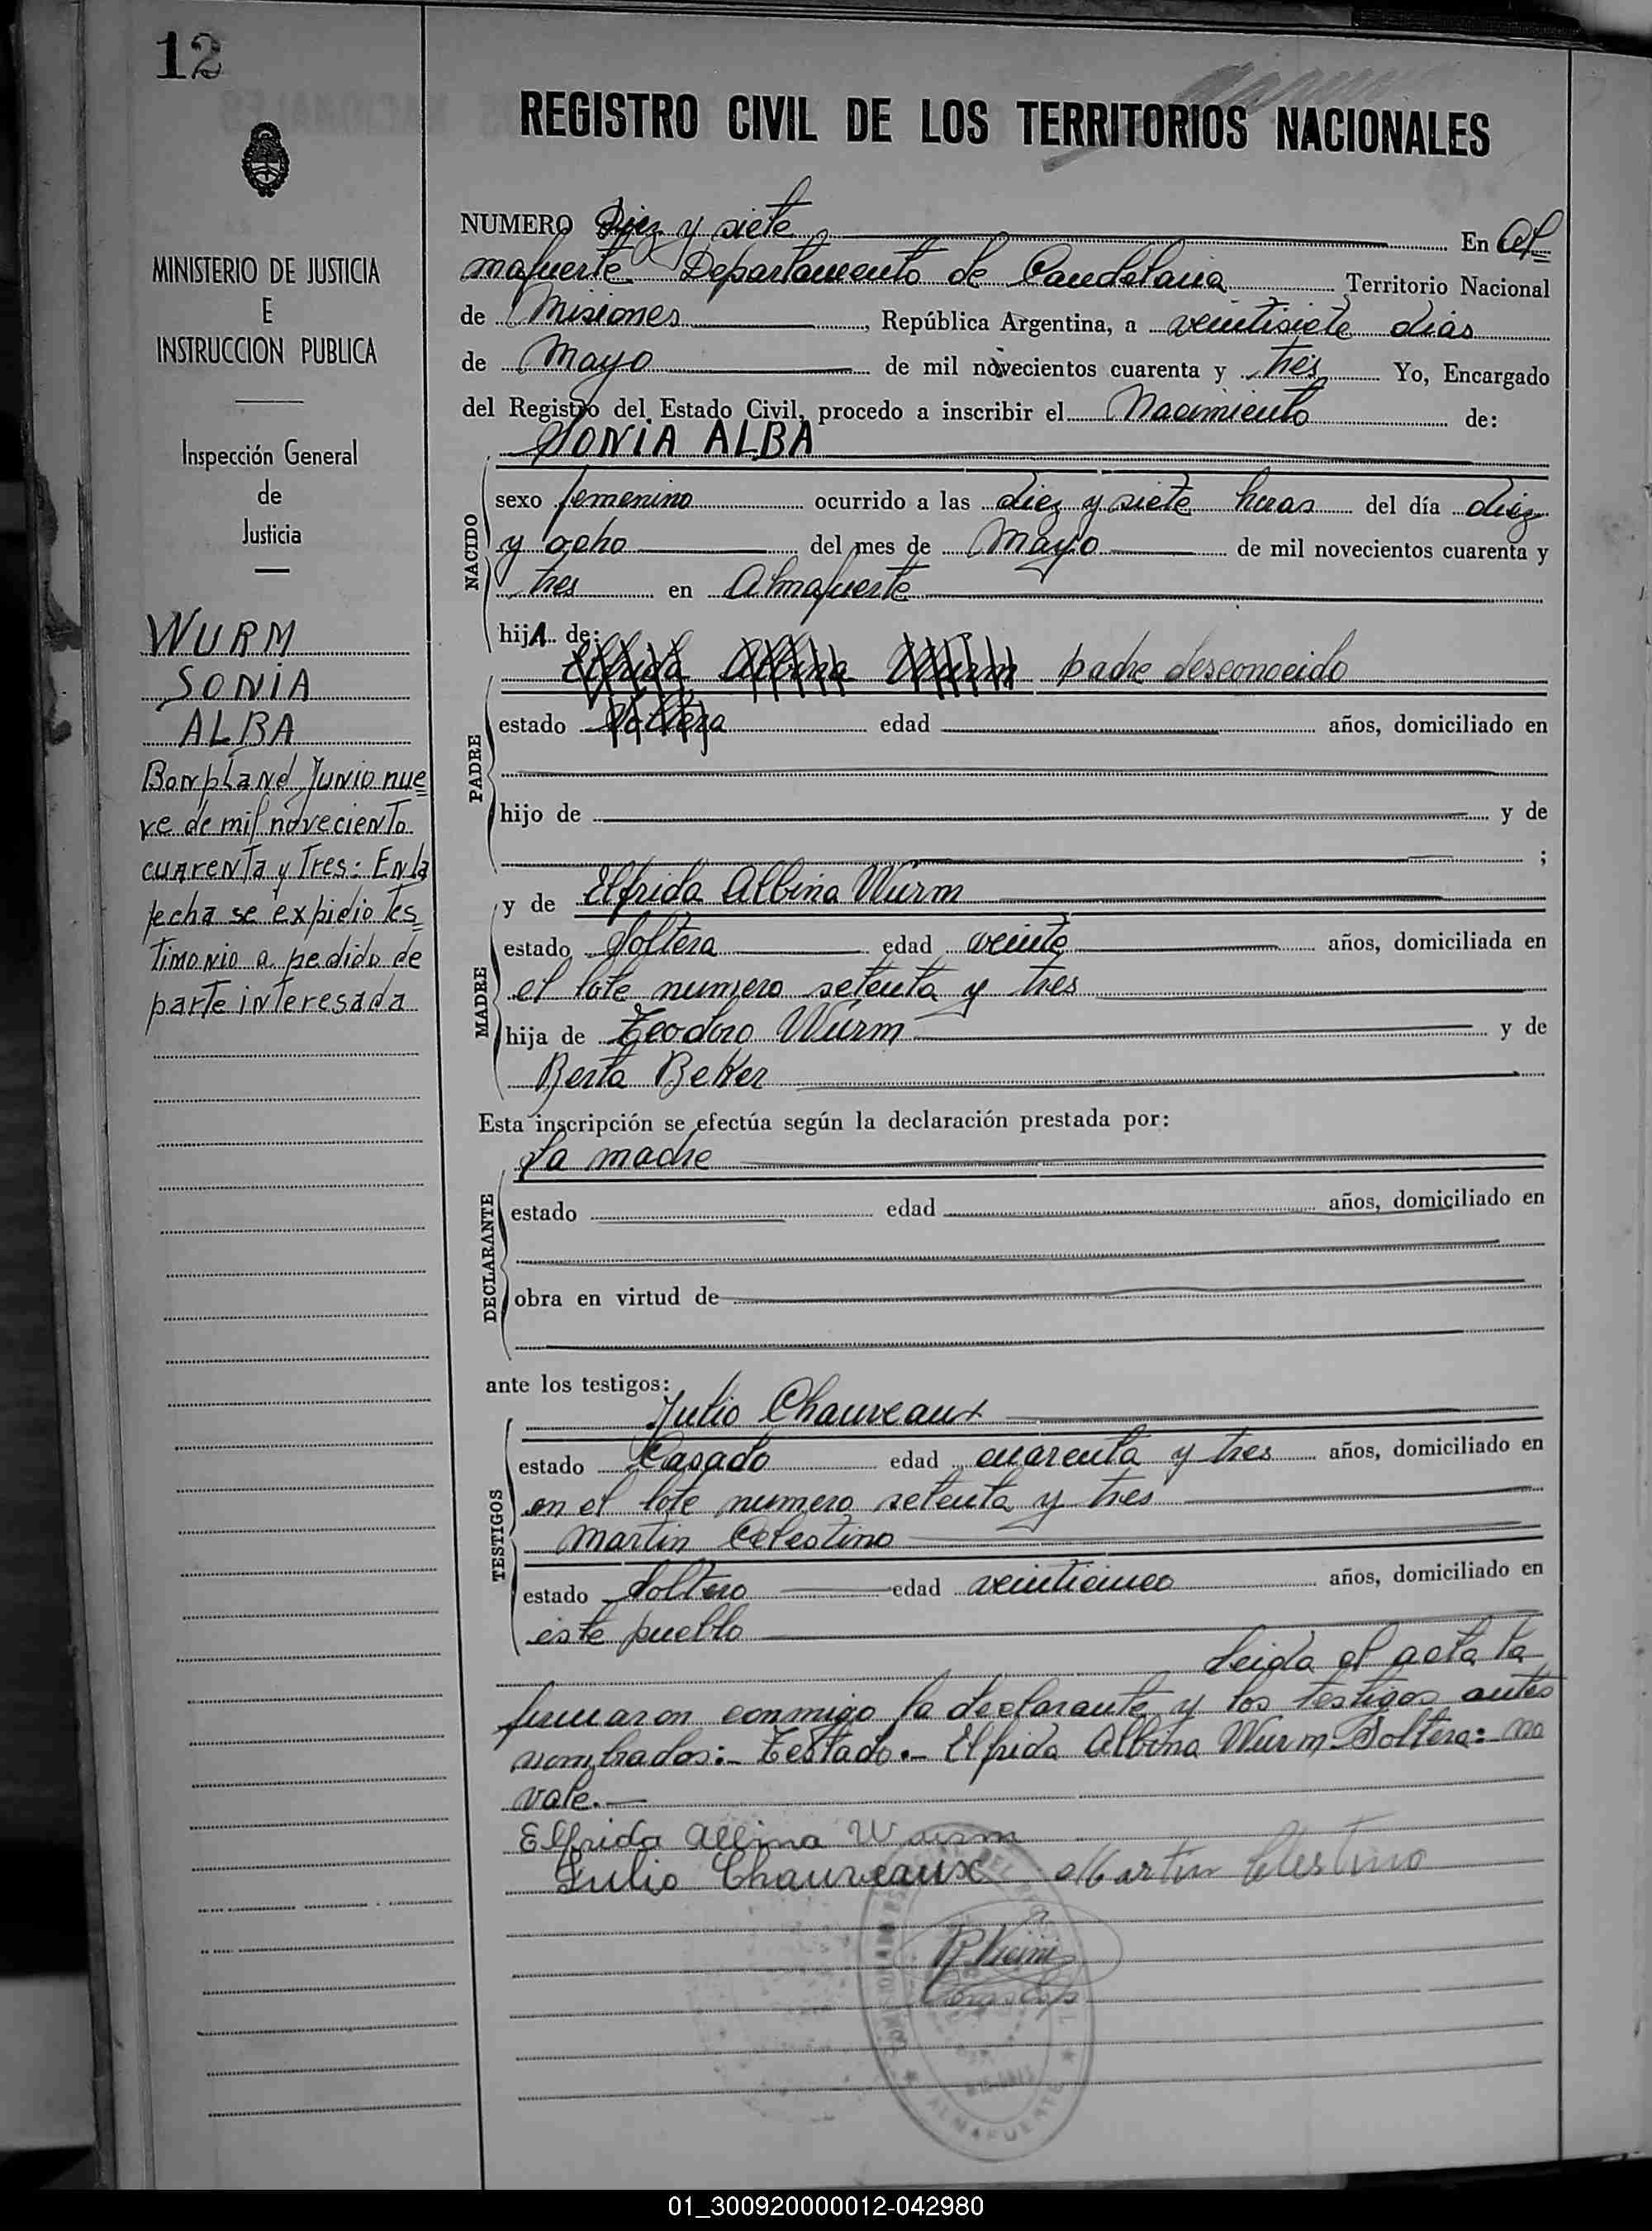 12
REGISTRO CIVIL DE LOS TERRITORIOS NACIONALES
MINISTERIO DE JUSTICIA
E
INSTRUCCION PUBLICA
Inspección General
de
Justicia
WURM
SONIA
ALBA
Bonpland Junio nue=
ve de mil noveciento
cuarenta y Tres: En la
fecha se expidio Tes=
Timonio a pedido de
parte interesada
NUMERO Diez y siete En Al=
mafuerte Departamento de Candelaria Territorio Nacional
de Misiones, República Argentina, a veintisiete dias
de Mayo de mil novecientos cuarenta y tres Yo, Encargado
del Registro del Estado Civil, procedo a inscribir el Nacimiento de:
SONIA ALBA
NACIDO
sexo femenino ocurrido a las diez y siete horas del día diez
y ocho del mes de Mayo de mil novecientos cuarenta y
tres en Almafuerte
hijA de:
PADRE
Elfrida Albina Wurm padre desconocido
estado Soltera edad años, domiciliado en
hijo de y de
;
MADRE
y de Elfrida Albina Wurm
estado Soltera edad veinte años, domiciliada en
el lote numero setenta y tres
hija de Teodoro Wurm y de
Berta Beker
Esta inscripción se efectúa según la declaración prestada por:
DECLARANTE
La madre
estado edad años, domiciliado en
obra en virtud de
ante los testigos:
TESTIGOS
Julio Chauveaux
estado Casado edad cuarenta y tres años, domiciliado en
en el lote numero setenta y tres
Martin Celestino
estado Soltero edad veinticinco años, domiciliado en
este pueblo
Leida el acta la
firmaron conmigo la declarante y los testigos antes
nombrados:- Testado.- Elfrida Albina Wurm-Soltera: no
vale.-
Elfrida Albina Wurm
Julio Chauveaux Martin Celestino
ALMAFUERTE
01_300920000012-042980